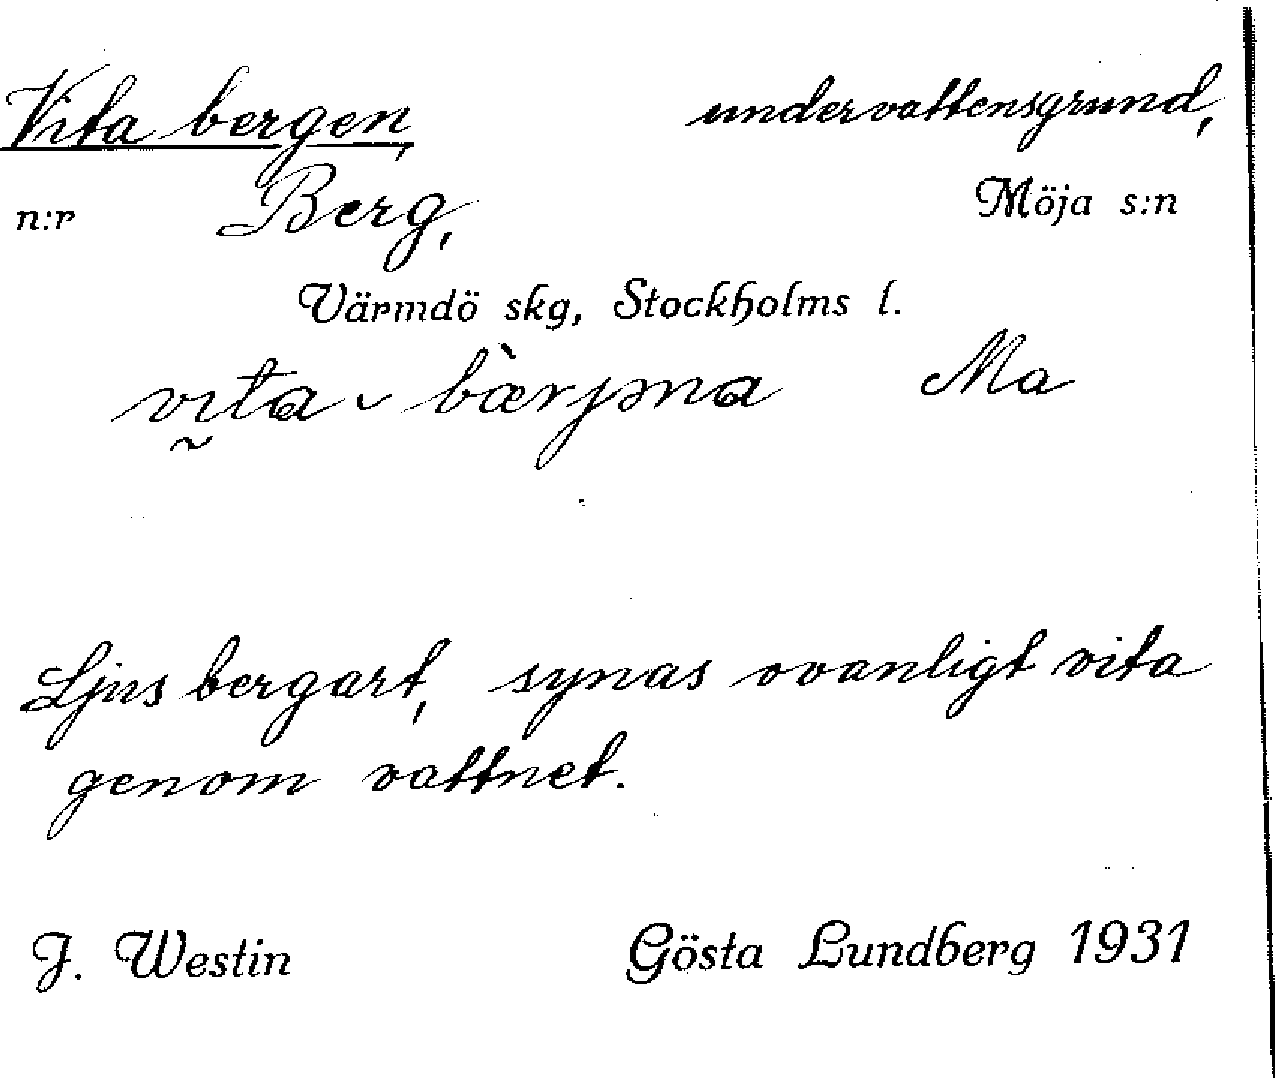 Vita bergen, undervattensgrund,
n:r Berg, Möja s:n
Värmdö skg, Stockholms l.
vita bærjəna Ma
Ljus bergart, synas ovanligt vita
genom vattnet.
J. Westin Gösta Lundberg 1931